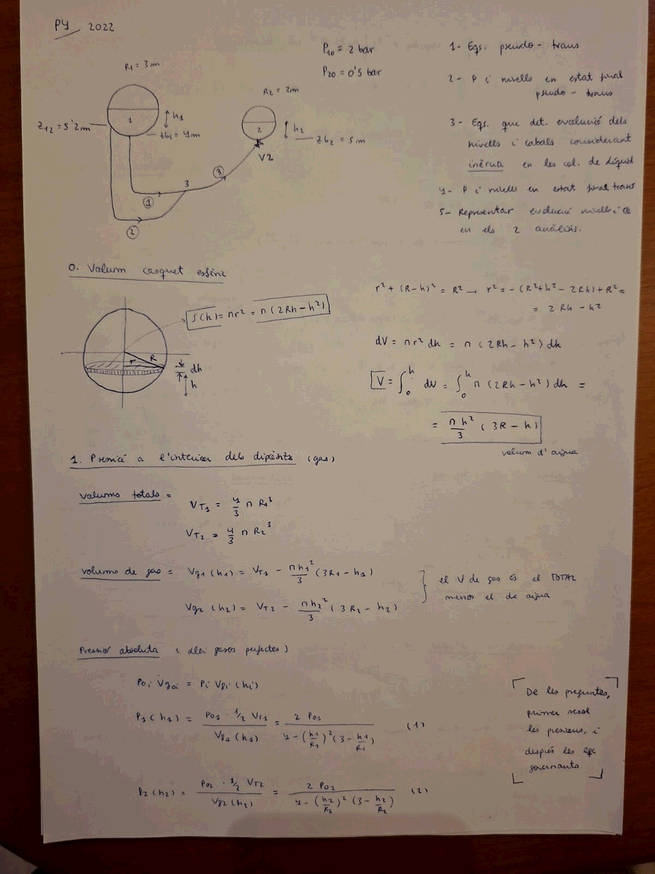 P4 2022
P10 = 2 bar
P20 = 0'5 bar
R1 = 3 m
R2 = 2m
z12 = 5'2m
h1
1
zb1 = 4m
2
h2
zb2 = 5m
V2
3
①
②
③
1- Eqs. pseudo-trans
2- P i nivells en estat final
pseudo-trans
3- Eqs. que det. evolució dels
nivells i cabals considerant
inèrcia en les col. de líquid
4- P i nivells en estat final trans
5- Representar evolució nivells i Q
en els 2 anàlisis.
0. Volum casquet esfèric
S(h) = πr² = π(2Rh - h²)
r
R
dh
h
r² + (R-h)² = R² → r² = -(R²+h²-2Rh)+R² =
= 2Rh - h²
dV = πr² dh = π(2Rh - h²)dh
V = ∫₀ʰ dV = ∫₀ʰ π(2Rh - h²)dh =
= πh²/3 (3R - h)
volum d'aigua
1. Pressió a l'interior dels dipòsits (gas)
Volums totals =
VT1 = 4/3 π R1³
VT2 = 4/3 π R2³
Volums de gas = Vg1(h1) = VT1 - πh1²/3 (3R1 - h1)
Vg2(h2) = VT2 - πh2²/3 (3R2 - h2)
el V de gas és el TOTAL
menor el de aigua
Pressió absoluta (llei gasos perfectes)
P0i Vg0i = Pi Vgi(hi)
P1(h1) = P01 · 1/2 VT1 / Vg1(h1) = 2 P01 / 4-(h1/R1)²(3-h1/R1) (1)
P2(h2) = P02 · 1/2 VT2 / Vg2(h2) = 2 P02 / 4-(h2/R2)²(3-h2/R2) (2)
De les preguntes,
primer
les pressions, i
després les eqs
governants